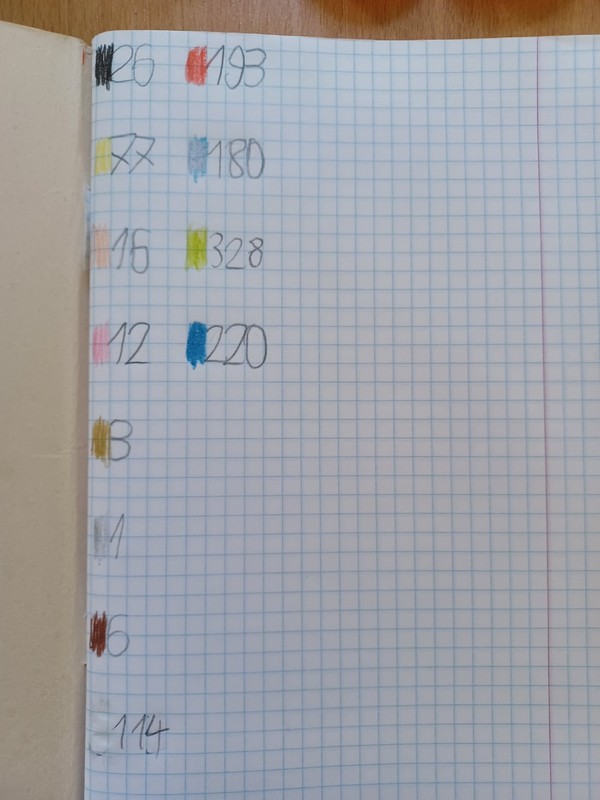 26 193
77 180
16 328
12 220
3
1
6
114